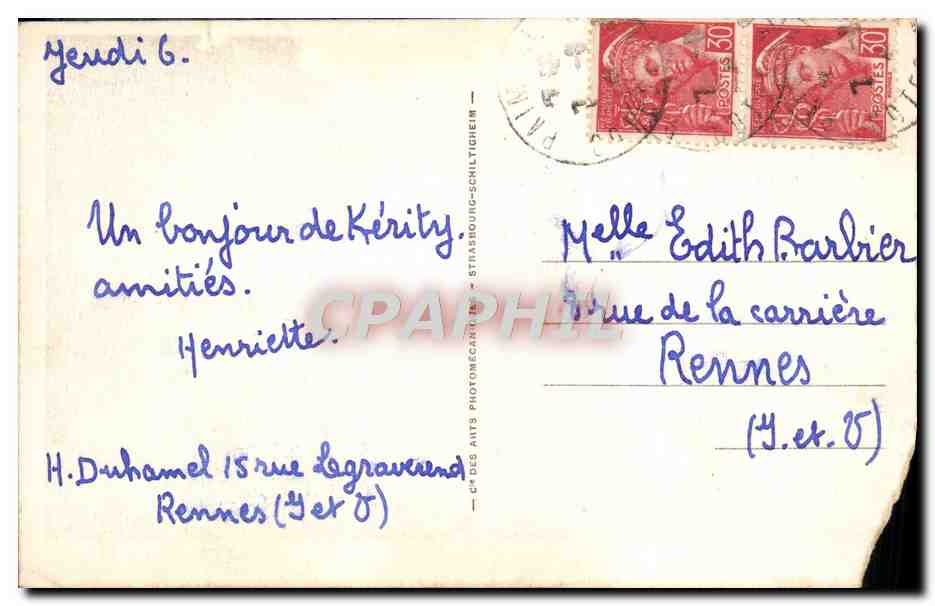 Jeudi 6.
Un bonjour de Kérity.
amitiés.
Henriette.
H. Duhamel 15 rue Legraverend
Rennes (I et V)
— Cie DES ARTS PHOTOMÉCANIQUES - STRASBOURG-SCHILTIGHEIM —
30
POSTES
30
POSTES
Melle Edith Barbier
rue de la carrière
Rennes
(I. et. V)
CPAPHIL